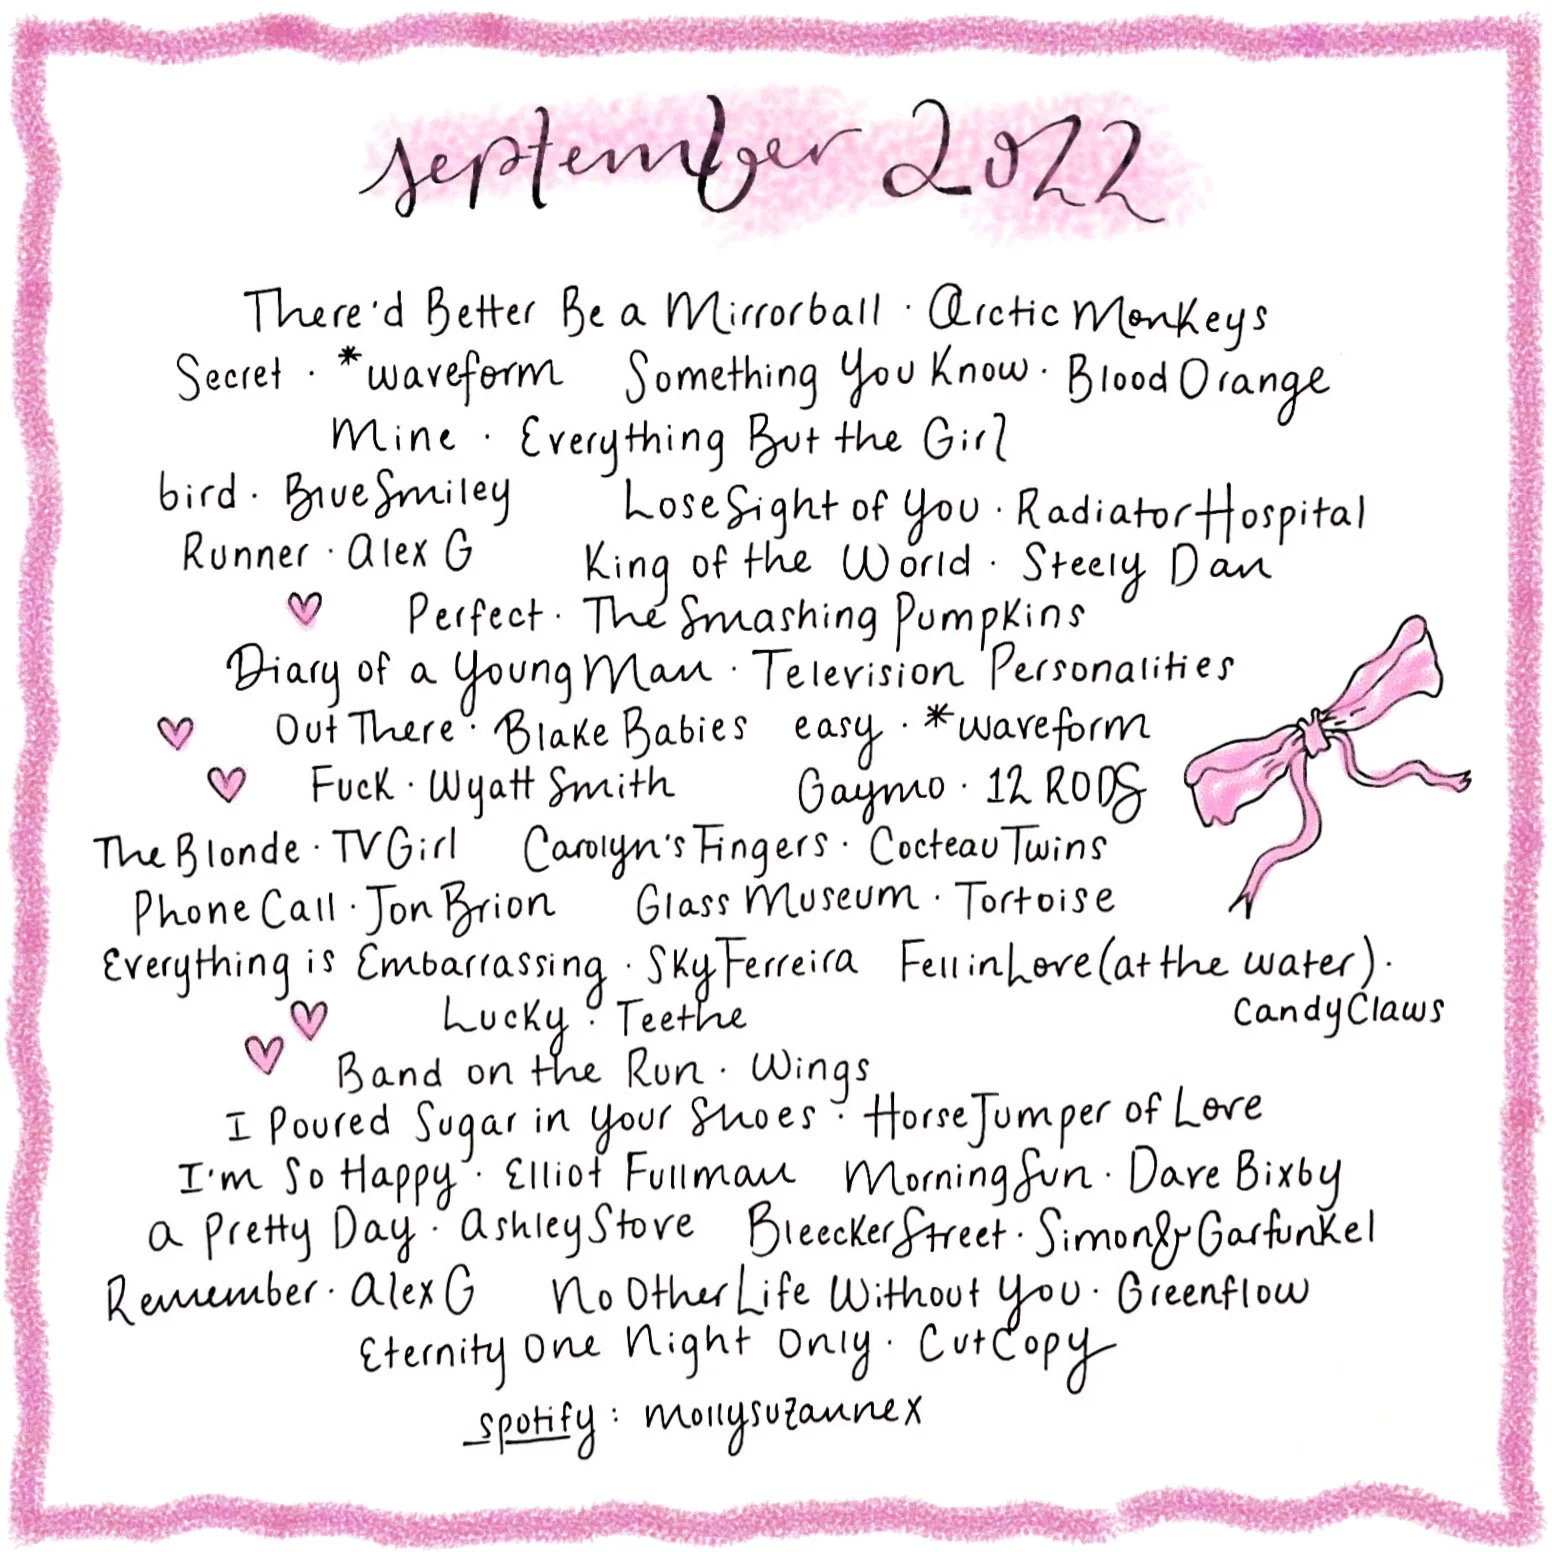 september 2022
There'd Better Be a Mirrorball · Arctic Monkeys
Secret · *waveform Something You Know · Blood Orange
Mine · Everything But the Girl
bird · Blue Smiley Lose Sight of You · Radiator Hospital
Runner · Alex G King of the World · Steely Dan
Perfect · The Smashing Pumpkins
Diary of a Young Man · Television Personalities
Out There · Blake Babies easy · *waveform
Fuck · Wyatt Smith Gaymo · 12 RODS
The Blonde · TV Girl Carolyn's Fingers · Cocteau Twins
Phone Call · Jon Brion Glass Museum · Tortoise
Everything is Embarrassing · Sky Ferreira Fell in Love (at the water) ·
Candy Claws
Lucky · Teethe
Band on the Run · Wings
I Poured Sugar in Your Shoes · Horse Jumper of Love
I'm So Happy · Elliot Fullman Morning Sun · Dave Bixby
A Pretty Day · Ashley Stove Bleecker Street · Simon & Garfunkel
Remember · Alex G No Other Life Without You · Greenflow
Eternity One Night Only · Cut Copy
spotify: mollysuzannex